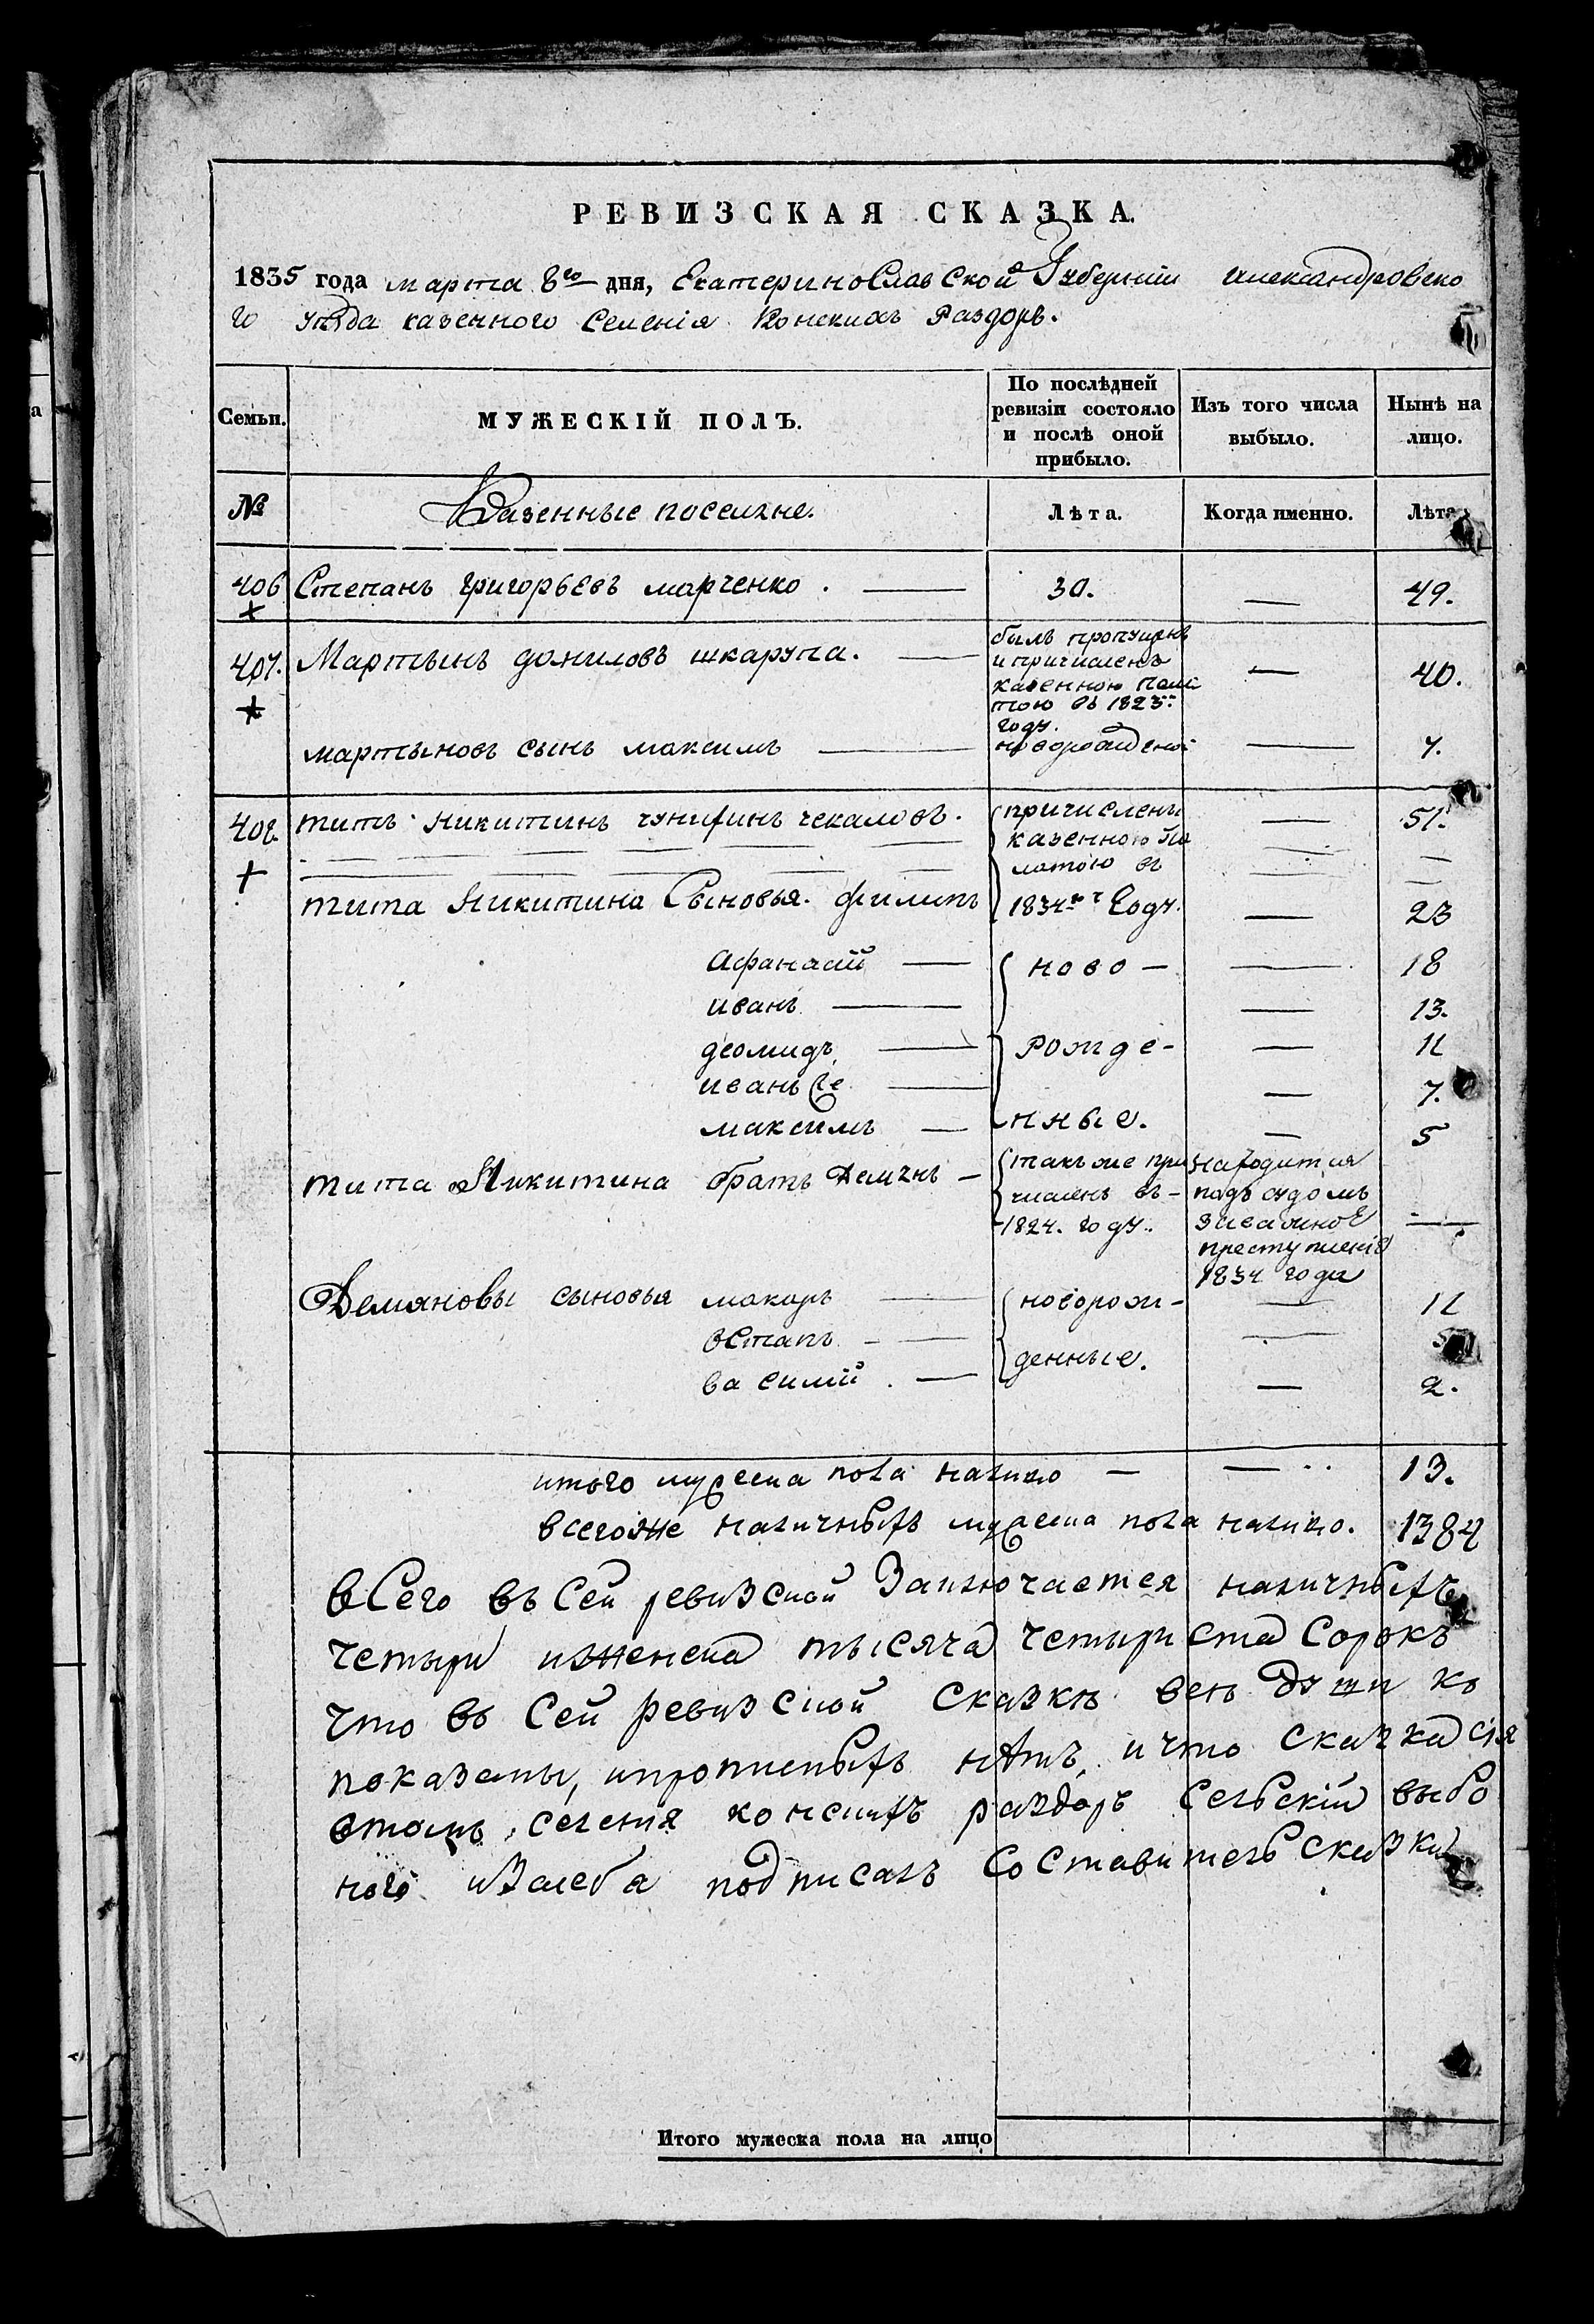 РЕВИЗСКАЯ СКАЗКА.
1835 года марта 8го дня, Екатеринославской Губерніи александровско
го уѣзда казенного селенія Конскихъ Раздоръ.
Семьи.
МУЖЕСКІЙ ПОЛЪ.
По послѣдней ревизіи состояло и послѣ оной прибыло.
Изъ того числа выбыло.
Нынѣ на лицо.
№
Казенные поселяне.
Лѣта.
Когда именно.
Лѣта
406 Степанъ григорьевъ марченко. — 30. — 49.
407. Мартынъ даниловъ шкарупа. —
былъ пропущенъ
и причисленъ
казенною пала
тою въ 1823:
году.
— 40.
мартыновъ сынъ максимъ — новорожденой — 7.
408. титъ никитинъ чекаловъ.
причислены
казенною па
латою въ
1834го Году.
— 51.
тита Никитина Сыновья. филипъ — 23
Афанасій — ново — — 18
иванъ — — 13.
деомидъ — рожде- — 11
иванъ 2е — — 7.
максимъ — нные. — 5
тита Никитина братъ Демянъ —
такъ же при
численъ въ
1824. году.
находится
подъ судомъ
преступленіе
1834 года
—
Демяновы сыновья макаръ — новорож- — 11
остапъ — — 5
василій. — денные. — 2.
итого мужеска пола налицо — — 13.
всегоже наличныхъ мужеска пола налицо. 1384
всего въ сей ревизской Заключается наличныхъ
четыри иженска тысяча четыриста Сорокъ
что въ Сей ревизской сказкѣ всѣ души ко
показаны, ипрописныхъ нѣтъ, ичто сказка сія
втомъ селенія конскихъ раздоръ Сельскій выбо
ного подписалъ Составитель сказки
Итого мужеска пола на лицо